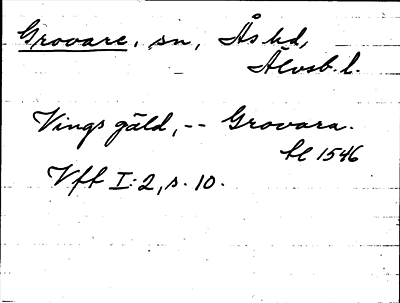 Grovare, sn, Ås hd,
Älvsb. l.
Vings gäld, -- Grovara.
bl 1546
Vft I:2, s. 10.